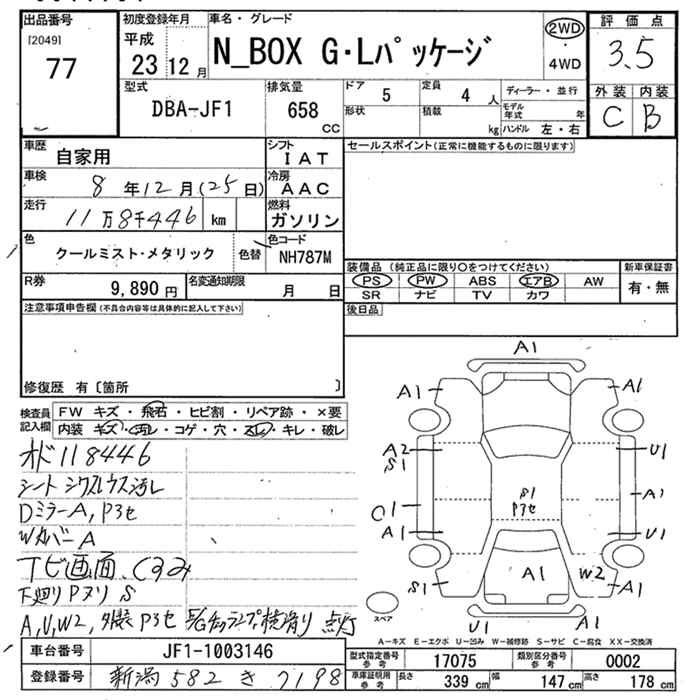 出品番号
[2049]
77
初度登録年月
平成
23 12 月
車名・グレード
N_BOX G・Lパッケージ
2WD
・
4WD
評価点
3.5
外装 内装
C B
型式
DBA-JF1
排気量
658
CC
ドア
5
定員
4 人
形状
積載
kg
ディーラー・並行
モデル年式 年
ハンドル 左・右
車歴
自家用
シフト
IAT
車検
8 年 12 月 (25 日)
冷房
AAC
走行
11万8千446 km
燃料
ガソリン
色
クールミスト・メタリック
色替
色コード
NH787M
R券
9,890 円
名変通知期限
月 日
セールスポイント(正常に機能するものに限ります)
装備品 (純正品に限り○をつけてください)
PS PW ABS エアB AW
SR ナビ TV カワ
新車保証書
有・無
後日品
注意事項申告欄(不具合内容等は具体的に記入して下さい)
修復歴 有〔箇所 〕
検査員記入欄
FW キズ・飛石・ヒビ割・リペア跡・×要
内装 キズ・汚レ・コゲ・穴・スレ・キレ・破レ
オド118446
シート シワスレウス汚レ
DミラーA, Pヨセ
WカバーA
ナビ画面、くすみ
下廻りPヌリ S
A, U, W2, 外装Pヨセ 点灯
車台番号
JF1-1003146
登録番号
新潟 582 き 7198
A1
A1
A1
A2
S1
U1
C1
A1
A1
S1
Pヨセ
U1
S1
A1
W2
A1
U1
A1
スペア
A-キズ E-エクボ U-凹み W-補修跡 S-サビ C-腐食 XX-交換済
型式指定番号
参考
17075
類別区分番号
参考
0002
車庫証明用
参考
長さ
339 cm
幅
147 cm
高さ
178 cm